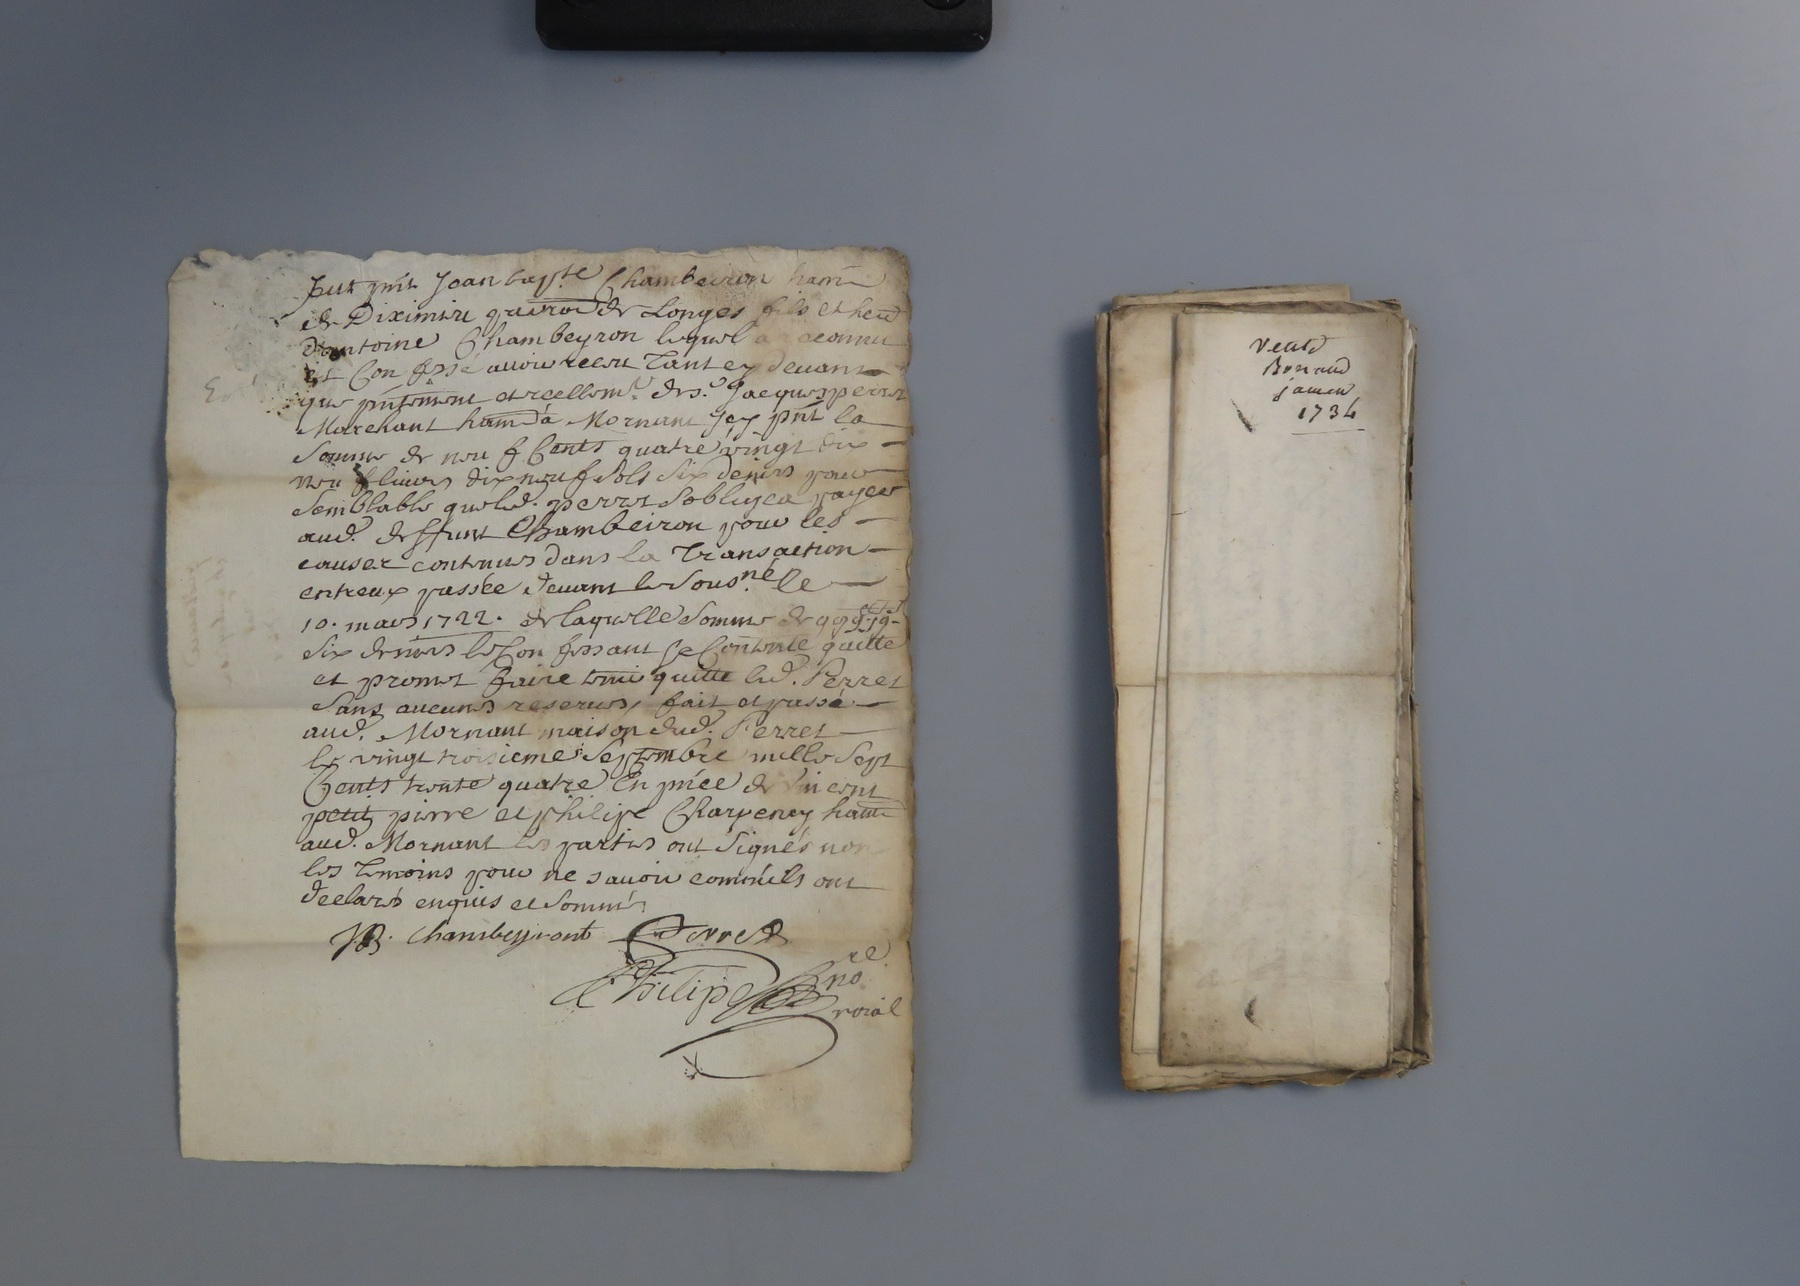 fut pnt Jean bapte Chambeiron hant
de Diximiru parroe de Longes fils et herr
d'antoine Chambeyron lequel a reconnu
et Confessé avoir receu Tant cy devant
que pntement et reellemt. de sr. Jacques perret
Marchant hant à Mornant icy pnt la
Somme de neuf Cents quatre vingt dix
neuf livres dix neuf sols six deniers pour
Semblable que led. perret s'obligea payer
aud. deffunt Chambeiron pour les
causes contenues dans la Transaction
entreux passée devant le Sousné le
10. mars 1722. de laquelle Somme de 999 19
Six deniers le Confessant se Contente quitte
et promet faire tenir quitte led. Perret
Sans aucunes reserves, fait et passé
aud. Mornant maison dud. Perret
le vingt troisieme Septembre mille Sept
Cents trente quatre En pnce de Vincent
petit pierre et philipe Charpeney hants
aud. Mornant les parties ont Signés non
les Temoins pour ne savoir comm'ils ont
declarés enquis et Sommés
JB. Chambeyront Perret
Philipe nore
roial
vente
Bonand
jamen
1734